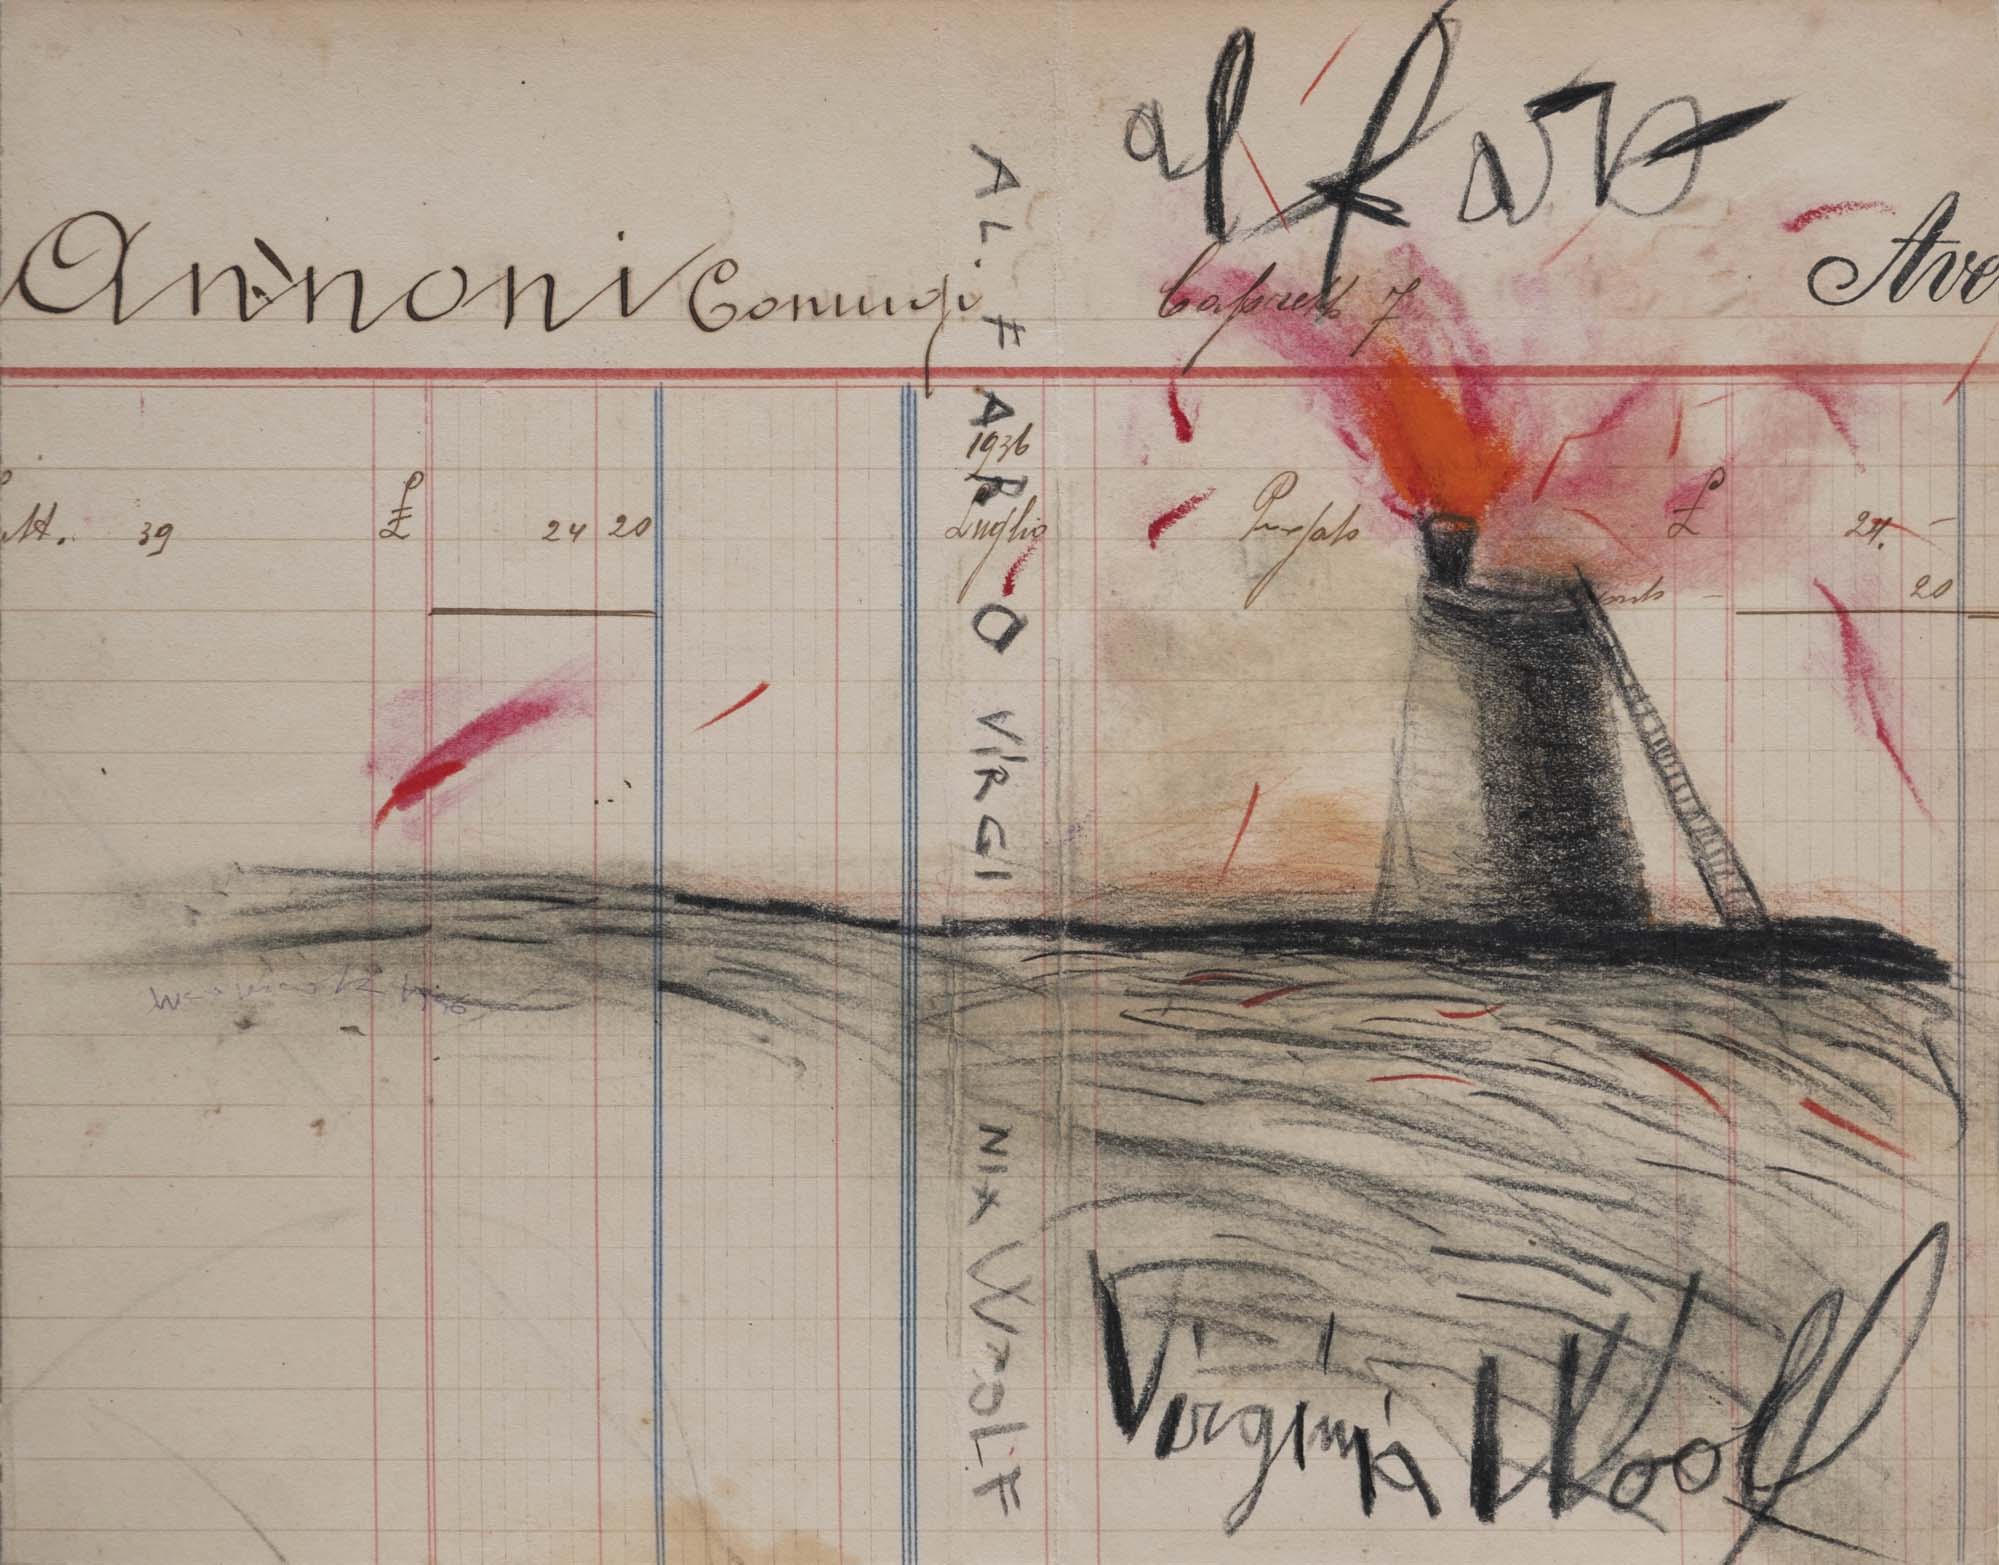 al faro
Annoni Coniugi
Ave
39 £ 24 20
1936
Luglio
£ 24. –
20
AL FARO VIRGINIA WOOLF
Virginia Woolf